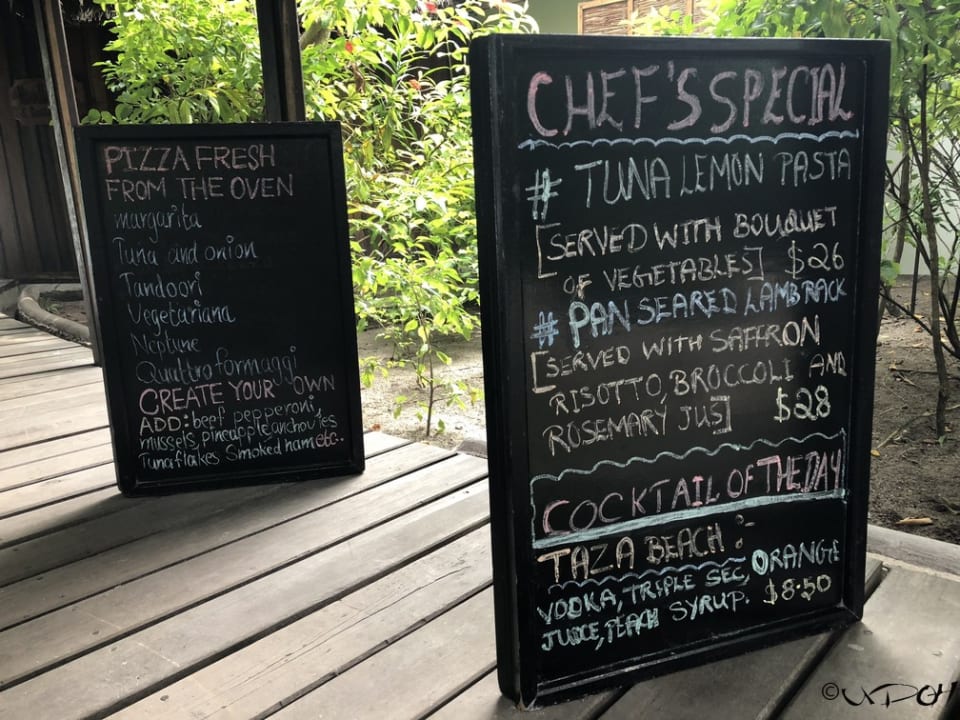 PIZZA FRESH
FROM THE OVEN
margarita
Tuna and onion
Tandoori
Vegetariana
Neptune
Quattro formaggi
CREATE YOUR OWN
ADD: beef pepperoni,
mussels, pineapple anchovies
Tuna flakes Smoked ham etc..
CHEF'S SPECIAL
# TUNA LEMON PASTA
[SERVED WITH BOUQUET
OF VEGETABLES] $26
# PAN SEARED LAMB RACK
[SERVED WITH SAFFRON
RISOTTO, BROCCOLI AND
ROSEMARY JUS] $28
COCKTAIL OF THE DAY
TAZA BEACH :-
VODKA, TRIPLE SEC, ORANGE
JUICE, PEACH SYRUP. $8.50